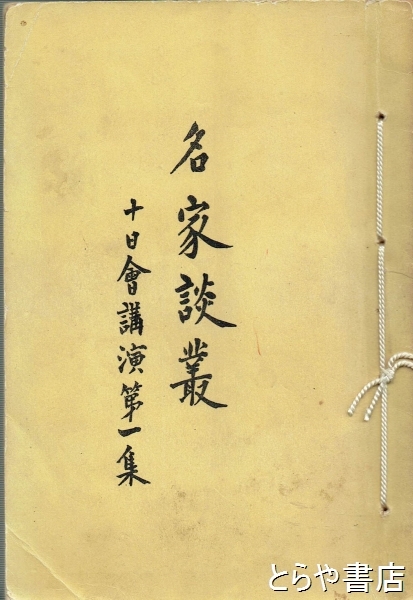 名家談叢
十日會講演第一集
とらや書店